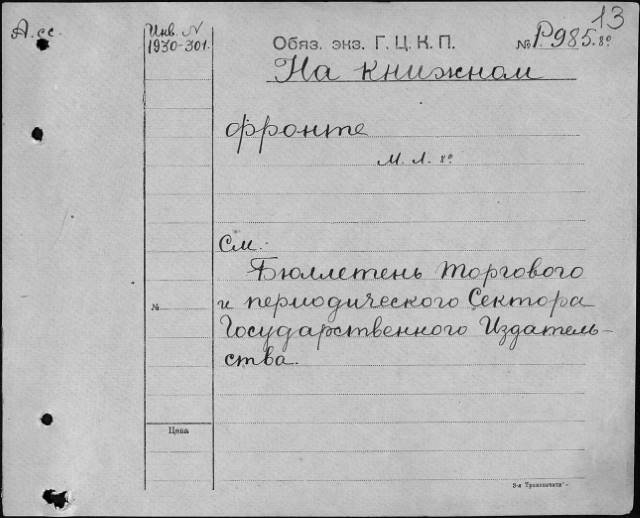 13
А.сс.
Инв. N
1930-301.
Обяз. экз. Г. Ц. К. П.
№ Р985.8º
На книжном
фронте
М. Л. 8º
См.:
Бюллетень торгового
и периодического Сектора
№
Государственного Издатель-
ства.
Цена